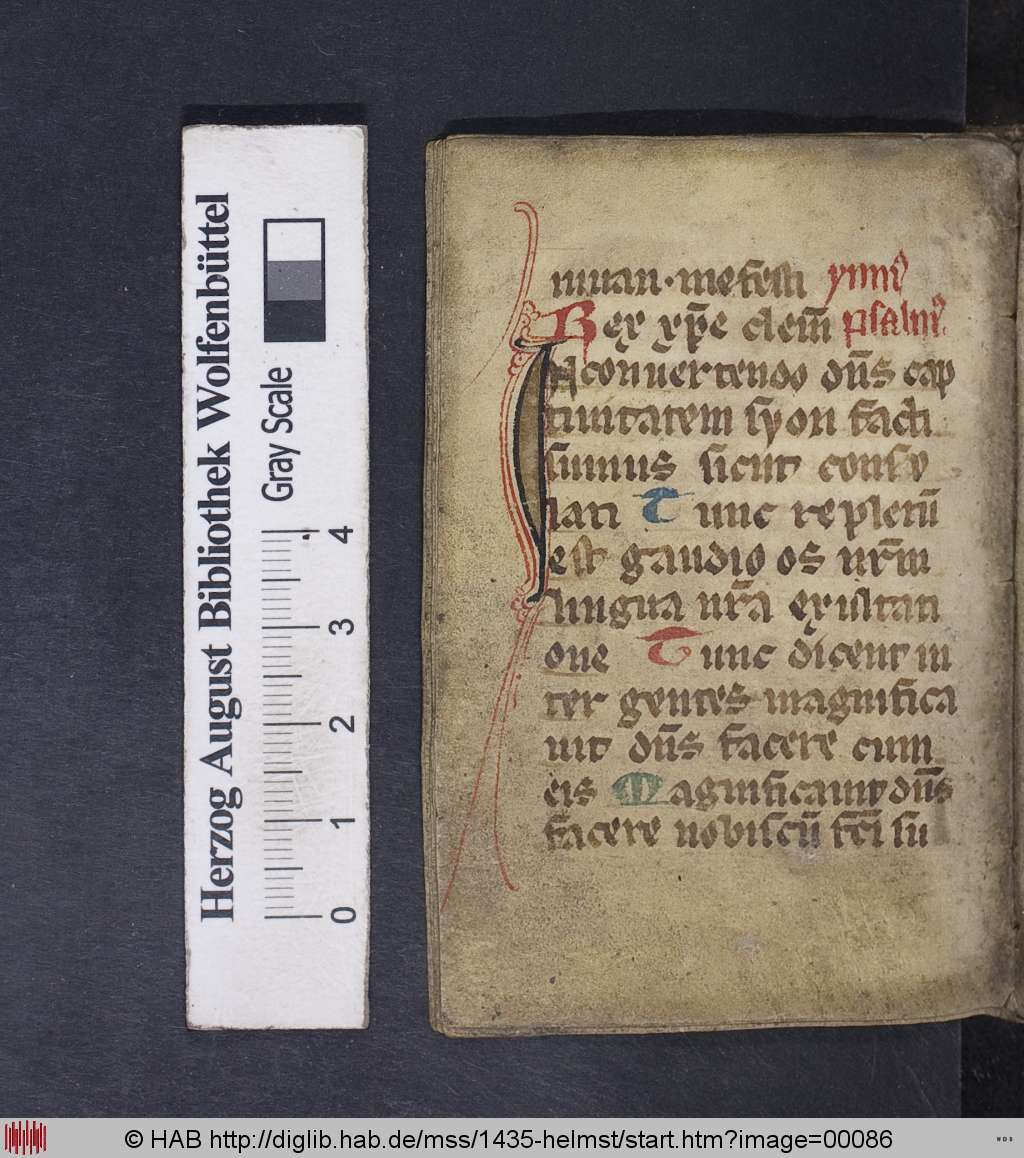 Herzog August Bibliothek Wolfenbüttel
Gray Scale
0 1 2 3 4
ymn⁹
Rex xp̄e clem̄ psalm⁹
In conuertendo dn̄s cap
tiuitatem syon facti
sumus sicut conso
lati Tunc repletū
est gaudio os nr̄m
lingua nr̄a exultati
one Tunc dicent in
ter gentes magnifica
uit dn̄s facere cum
eis Magnificauit dn̄s
facere nobiscū fc̄i su
© HAB http://diglib.hab.de/mss/1435-helmst/start.htm?image=00086